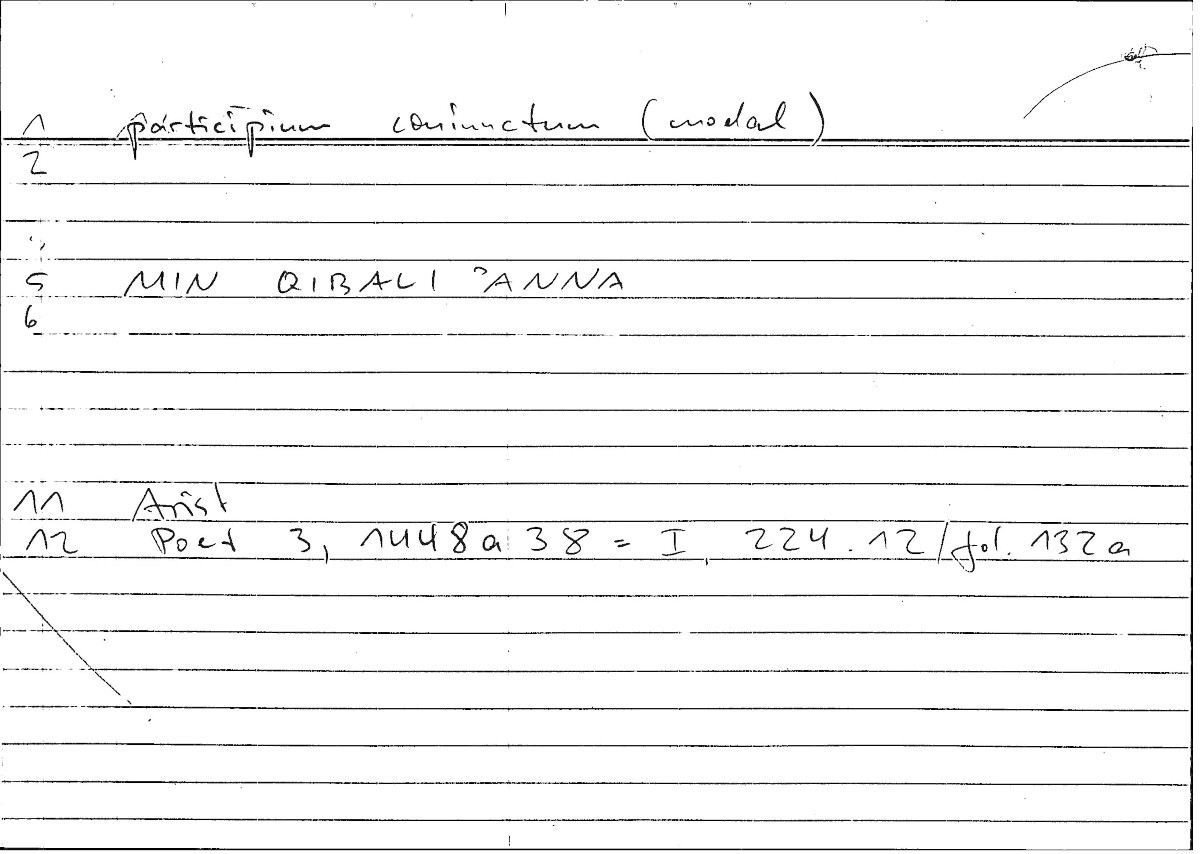 1 participium coniunctum (modal)
2
5 MIN QIBALI ʾANNA
6
11 Arist
12 Poet 3, 1448a 38 = I, 224.12/fol. 132a